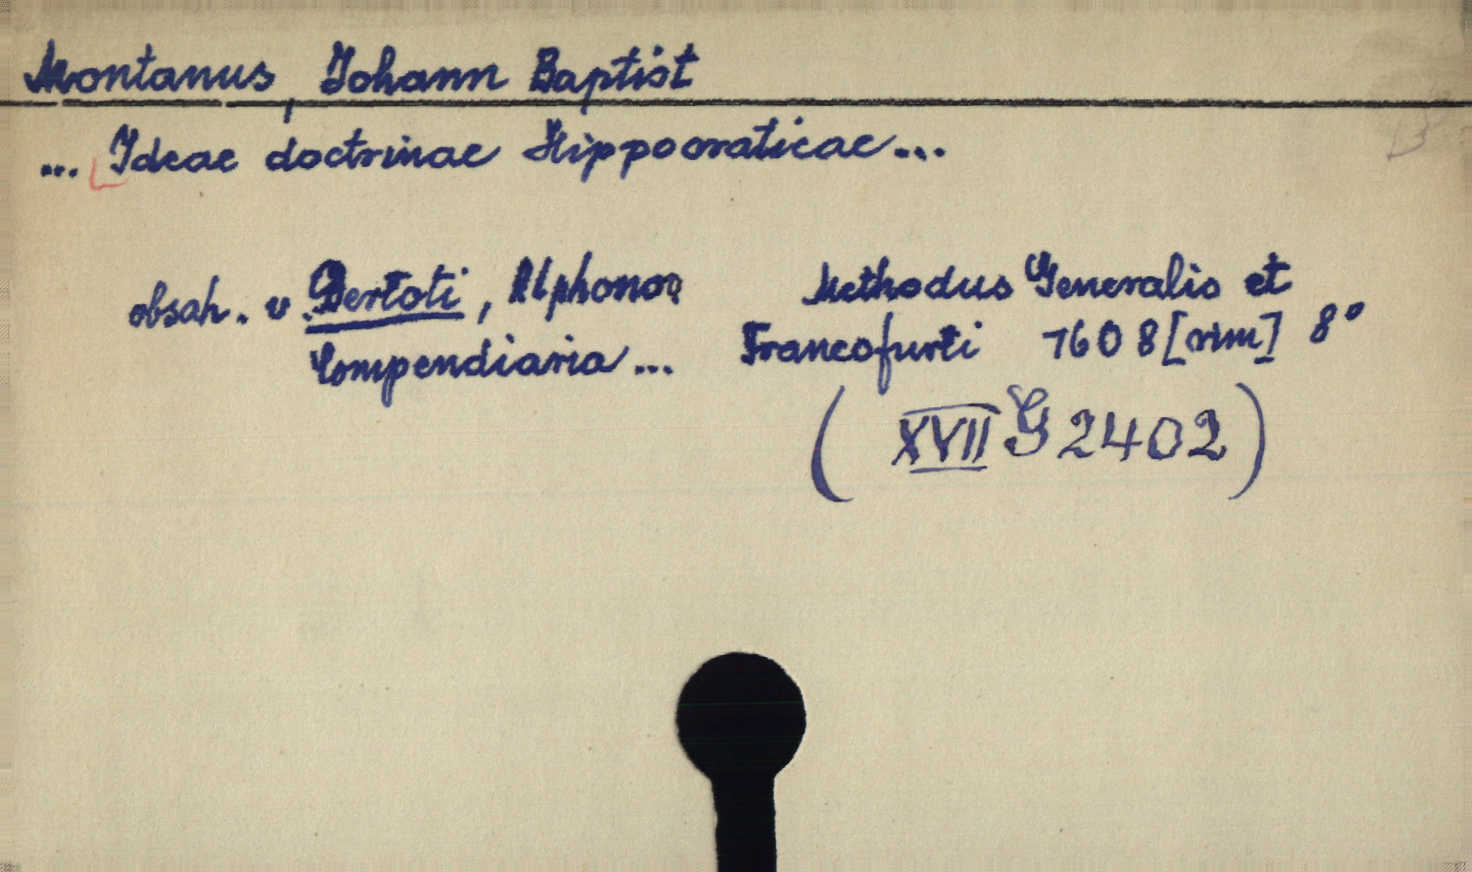 Montanus, Johann Baptist
... Ideae doctrinae Hippocraticae...
obsah. v Bertoti, Alphonso Methodus Generalis et
Compendiaria... Francofurti 1608 [rim] 8°
(XVII G 2402)